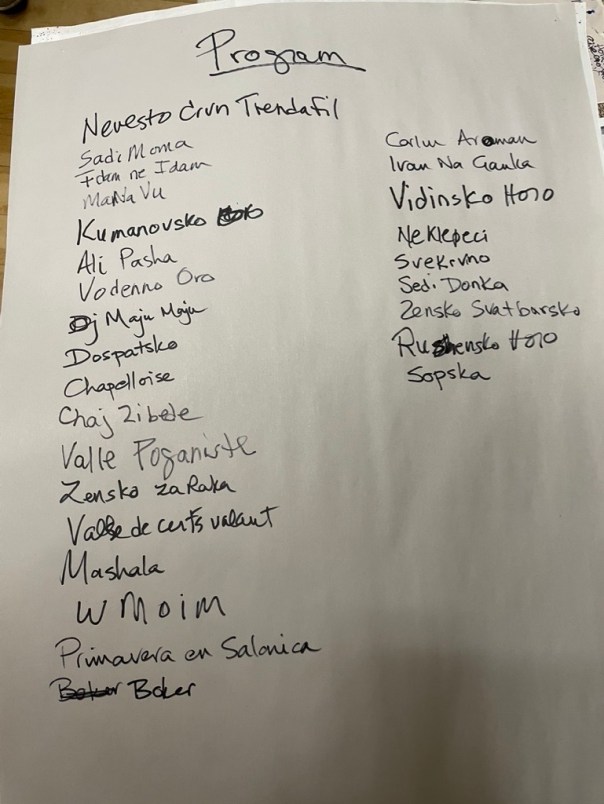 Program
Nevesto Crvn Trendafil
Sadi Moma
Idam ne Idam
Mana Vu
Kumanovsko
Ali Pasha
Vodenno Oro
Oj Maju Maju
Dospatsko
Chapelloise
Chaj Zibede
Valle Poganiste
Zensko za Raka
Valse de certs valant
Mashala
W Moim
Primavera en Salonica
Boker
Ivan Na Ganka
Vidinsko Horo
Ne Klepeci
Svekrvno
Sedi Donka
Zensko Svatbarsko
Rushensko Horo
Sopska